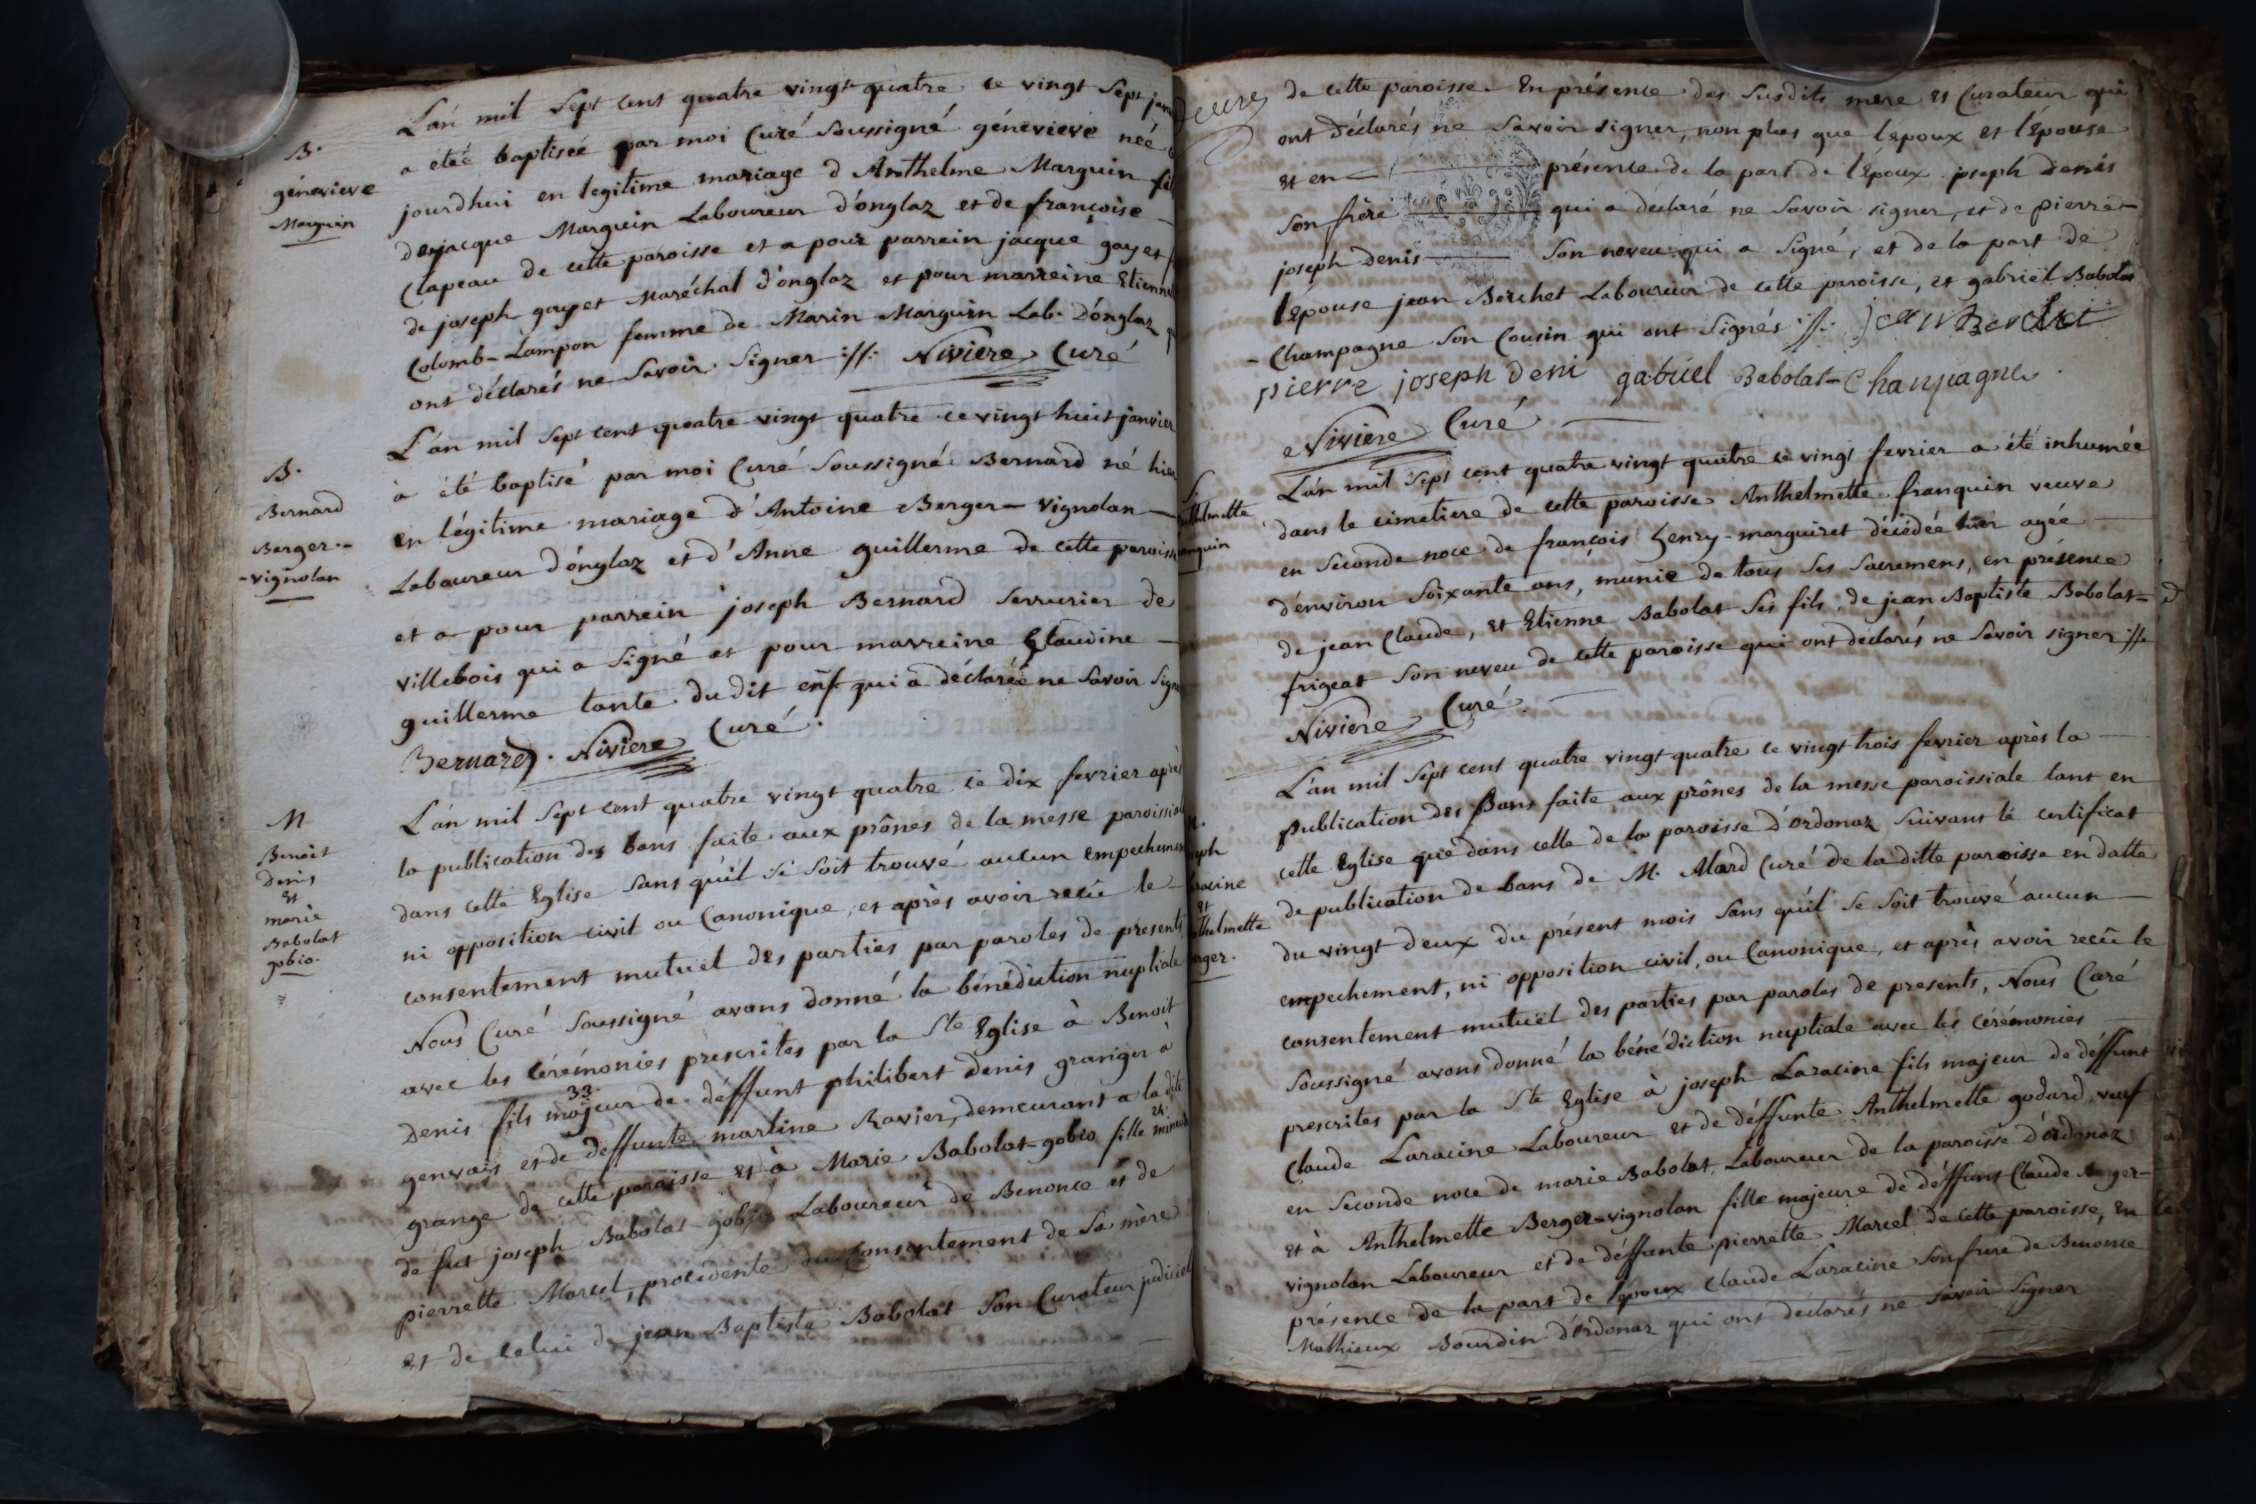 B.
génevieve
Marguin
L'án mil Sept cent quatre vingt quatre ce vingt Sept janv
a étéé baptiséé par moi Curé Soussigné génevieve néé
jourdhui en legitime mariage d'Anthelme Marguin fil
de jacque Marguin Laboureur d'ónglaz et de françoise
Clapeau de cette paroisse et a pour parrein jacque gayet f
de joseph gayet Maréchal d'ónglaz et pour marreine Etienne
Colomb-Lampon femme de Marin Marguin Lab. D'ónglaz q
ont déclarés ne Savoir Signer Niviere Curé
B.
Bernard
Berger-
-vignolan
L'án mil Sept cent quatre vingt quatre ce vingt huit janvier
à été baptisé par moi Curé Soussigné Bernard né hier
en légitime mariage d'Antoine Berger-vignolan
Laboureur d'ónglaz et d'Anne guillerme de cette paroiss
et a pour parrein joseph Bernard Serrurier de
villebois qui a Signé et pour marreine Claudine
guillerme tante du dit enft qui a déclaréé ne Savoir Sign
Bernard. Niviere Curé.
M
Benoît
Denis
et
marie
Babolat
gobio.
L'án mil Sept cent quatre vingt quatre ce dix fevrier aprè
la publication des bans faite aux prônes de la messe paroissial
dans cette Eglise sans qu'il Se Soit trouvé aucun empechement
ni opposition civil ou Canonique, et après avoir recüe le
consentement mutuël des parties par paroles de presents
Nous Curé Soussigné avons donné la bénédiction nuptiale
avec les Cérémonies prescrites par la Ste Eglise à Benoit
33.
Denis fils majeur de déffunt philibert Denis granger à
genvais et de deffunte martine Ravier, demeurant a la dite
24.
grange de cette paroisse et à Marie Babolat-gobio fille mineure
de fut joseph Babolat-gobio Laboureur de Benonce et de
pierrette Marcel, procédente du Consentement de Sa mère
et de Celui de jean Baptiste Babolat Son Curateur judiciel
de cette paroisse. En présence des Susdits mere et Curateur qui
ont déclarés ne Savoir signer, non plus que l'epoux et l'épouse
et en présence de la part de l'Epoux joseph Denis
Son frère qui a déclaré ne Savoir signer, et de pierre
joseph denis Son neveu qui a Signé, et de la part de
l'epouse jean Berchet Laboureur de cette paroisse, et gabriël Babolat
-Champagne Son Cousin qui ont Signés jean Berchet
pierre joseph deni gabriel Babolat-Champagne.
Niviere Curé
S.
Anthelmette
franquin
L'án mil Sept cent quatre vingt quatre ce vingt fevrier a été inhumée
dans le cimetiere de cette paroisse Anthelmette franquin veuve
en Seconde noce de françois henry-marguiret décédéé hier agéé
d'environ Soixante ans, munie de tous Ses Sacremens, en présence
de jean Claude, et Etienne Babolat Ses fils, de jean Baptiste Babolat-
frigeat Son neveu de cette paroisse qui ont declarés ne Savoir signer
Niviere Curé.
M.
joseph
Laracine
et
Anthelmette
Berger.
L'án mil Sept cent quatre vingt quatre ce vingt trois fevrier après la
Publication des Bans faite aux prônes de la messe paroissiale tant en
cette Eglise que dans celle de la paroisse d'ordonaz Suivant le certificat
de publication de bans de M. Alard Curé de la ditte paroisse en datte
du vingt deux du présent mois Sans qu'il Se Soit trouvé aucun
empechement, ni opposition civil, ou Canonique, et après avoir recüe le
consentement mutuël des parties par paroles de presents, Nous Curé
Soussigné avons donné la bénédiction nuptiale avec les Cérémonies
prescrites par la Ste Eglise à joseph Laracine fils majeur de déffunt
Claude Laracine Laboureur et de déffunte Anthelmette godard, veuf
en Seconde noce de marie Babolat, Laboureur de la paroisse d'ordonaz
et à Anthelmette Berger-vignolan fille majeure de déffunt Claude Berger-
vignolan Laboureur et de déffunte pierrette Marcel de cette paroisse, En
présence de la part de l'époux Claude Laracine Son frere de Benonce
Mathieux Bourdin d'ordonaz qui ont déclarés ne Savoir Signer